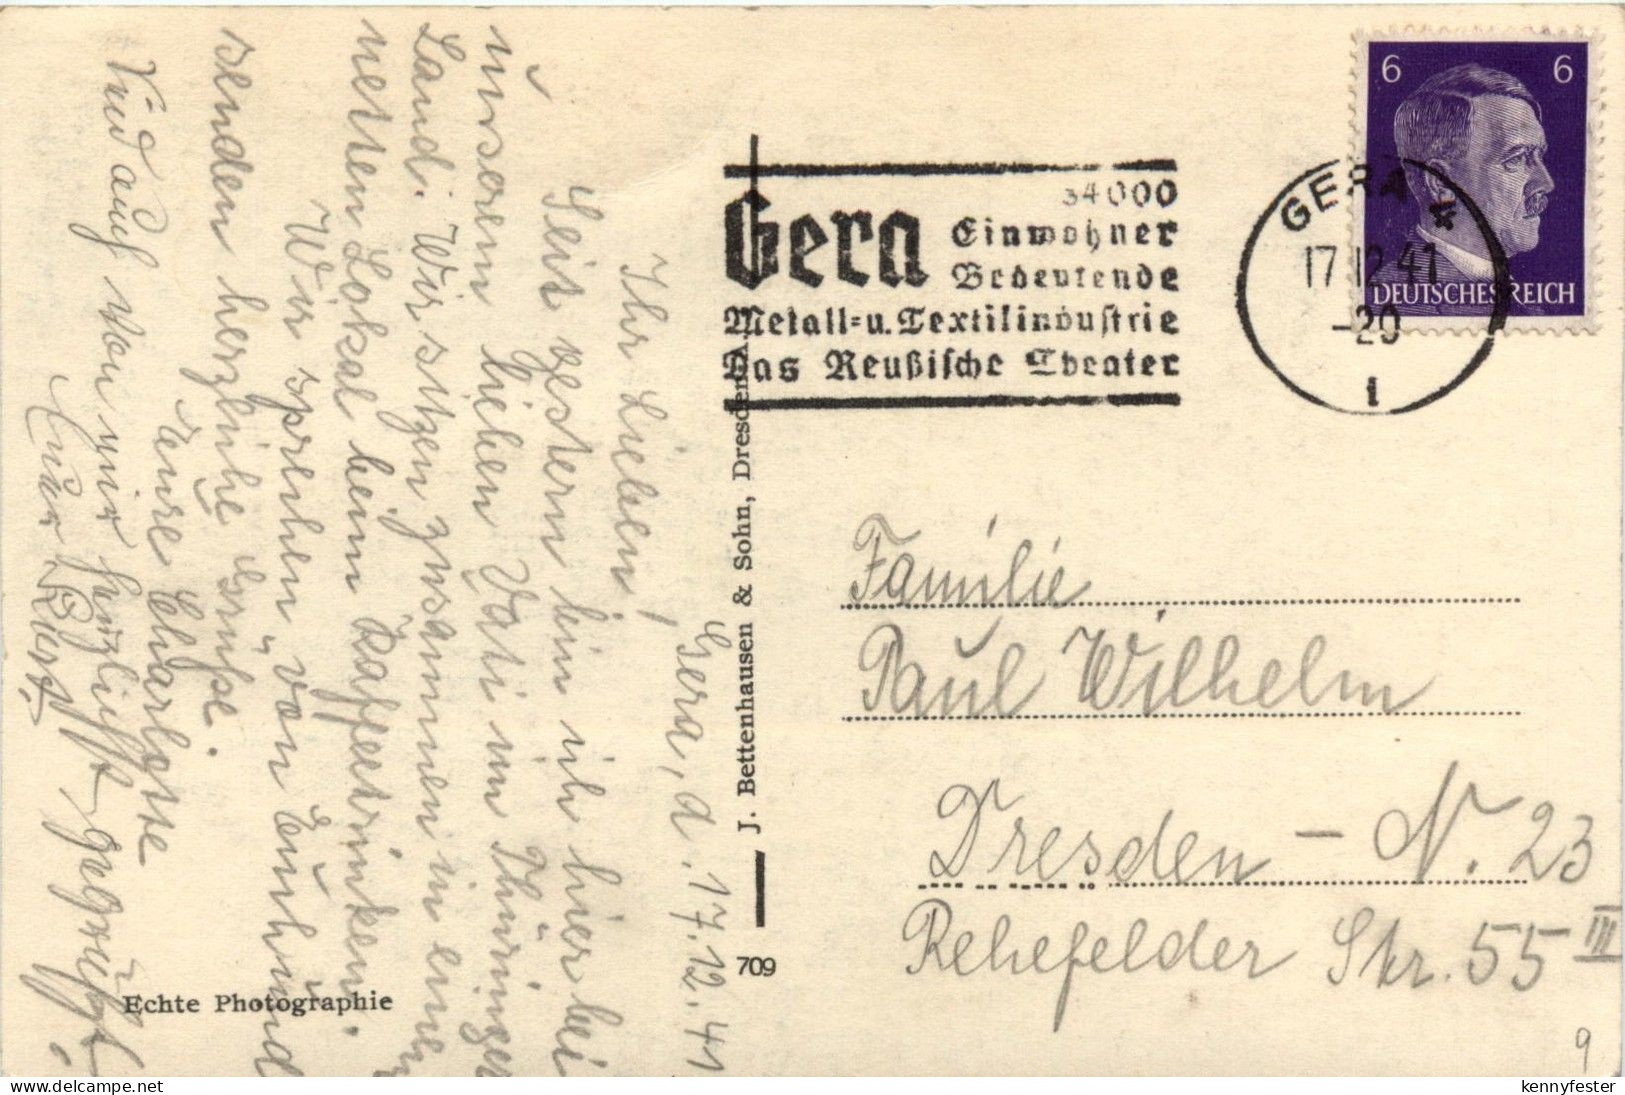 Gera, d. 17.12.41
Ihr Lieben!
Seit gestern bin ich hier bei
unserem lieben Vati im Thüringer
Land. Wir sitzen zusammen in einem
netten Lokal beim Kaffeetrinken.
Wir sprechen von Euch und
senden herzliche Grüße.
Eure Charlotte
Und auch von mir herzlichst gegrüßt!
Euer
Echte Photographie
J. Bettenhausen & Sohn, Dresden A.
709
Gera
34000
Einwohner
Bedeutende
Metall= u. Textilindustrie
Das Reußische Theater
GERA 4
17.12.41
-20
1
6 6
DEUTSCHES REICH
Familie
Paul Wilhelm
Dresden - N. 23
Rehefelder Str. 55 III
9
kennyfester